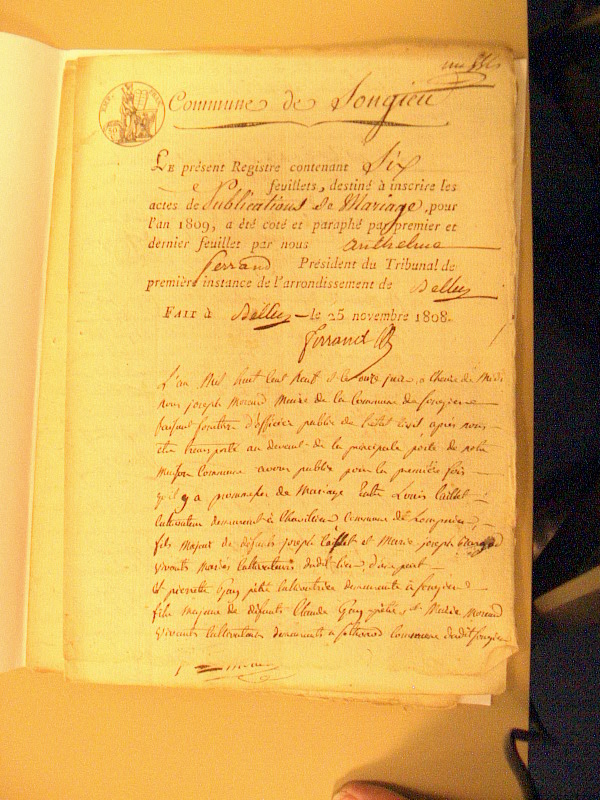 Commune de Songieu
LE présent Registre contenant Six
feuillets, destiné à inscrire les
actes de Publications de Mariage, pour
l'an 1809, a été coté et paraphé par premier et
dernier feuillet par nous anthelme
ferrand Président du Tribunal de
première instance de l'arrondissement de Belley
FAIT à Belley le 25 novembre 1808.
ferrand
L'an Mil huit Cent Neuf & le onze juin, a l'heure de Midi
Nous joseph Morand Maire de la Commune de songieu
faisant fonction d'officier public de l'état Civil, après nous
etre transporté au devant de la principale porte de notre
Maison Commune avons publié pour la première fois
qu'il y a promesses de Mariage Entre Louis
Cultivateur demeurant à Commune de
fils Majeur de défunts joseph et Marie joseph
vivants Mariés Cultivateurs dudit lieu, d'une part
Et pierrette Guy Cultivatrice demeurante à songieu
fille majeure de défunts Claude Guy et Marie Morand
vivants Cultivateurs demeurants a Commune dudit songieu